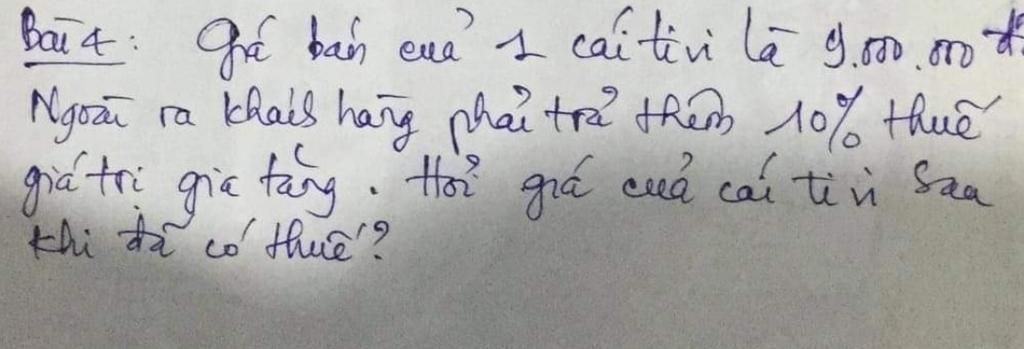 Bài 4: Giá bán của 1 cái ti vi là 9.000.000 đ.
Ngoài ra khách hàng phải trả thêm 10% thuế
giá trị gia tăng. Hỏi giá của cái ti vi sau
khi đã có thuế?